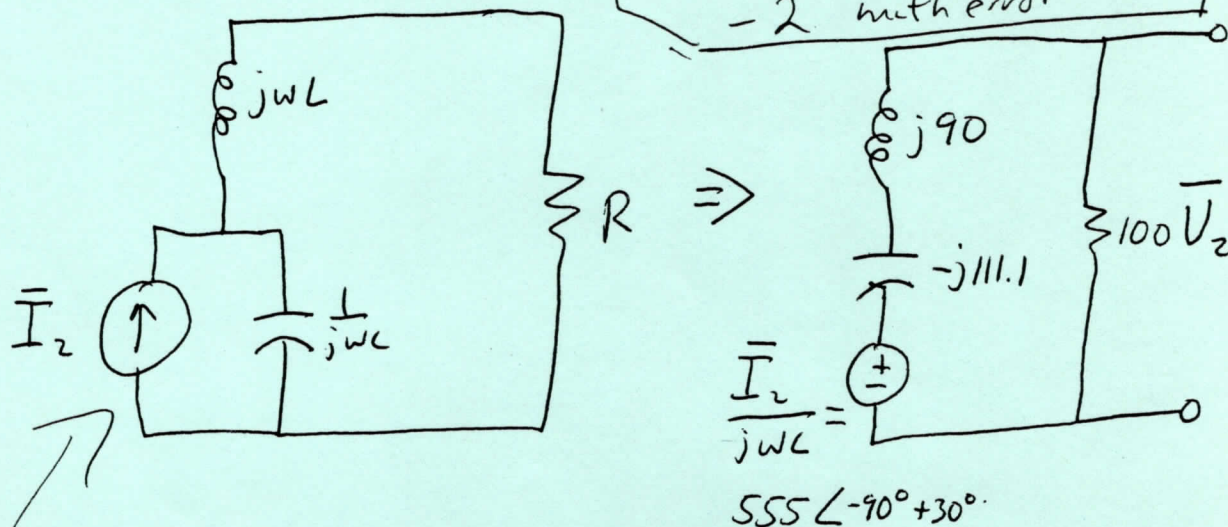 - 2 math error
jwL
Ī₂
1/jwC
R
⇒
j90
-j111.1
100
V̄₂
+
-
Ī₂/jwC =
555∠-90°+30°